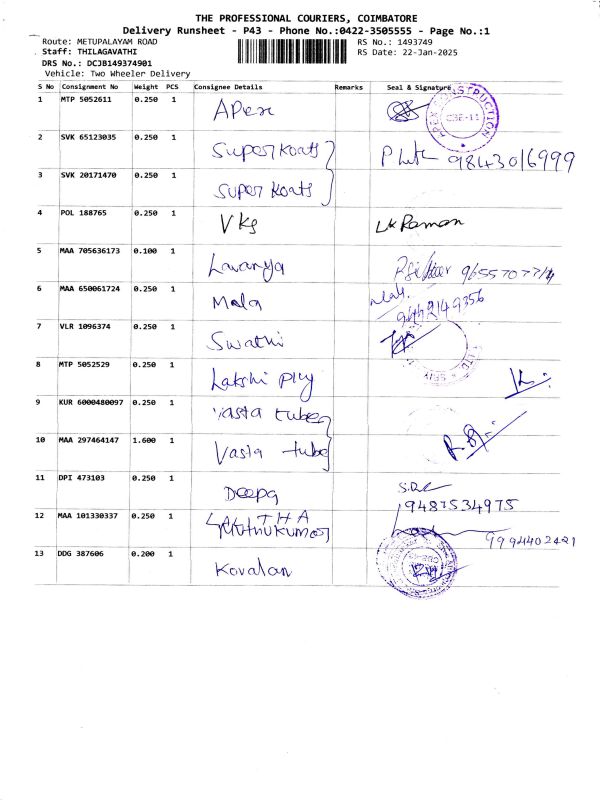 THE PROFESSIONAL COURIERS, COIMBATORE
Delivery Runsheet - P43 - Phone No.:0422-3505555 - Page No.:1
Route: METUPALAYAM ROAD RS No.: 1493749
Staff: THILAGAVATHI RS Date: 22-Jan-2025
DRS No.: DCJB149374901
Vehicle: Two Wheeler Delivery
S No Consignment No Weight PCS Consignee Details Remarks Seal & Signature
1 MTP 5052611 0.250 1 APex
APEX CONSTRUCTION CBE-11
2 SVK 65123035 0.250 1 Super Koats 9843016999
3 SVK 20171470 0.250 1 Super Koats
4 POL 188765 0.250 1 Vks Raman
5 MAA 705636173 0.100 1 Lavanya
6 MAA 650061724 0.250 1 Mala
7 VLR 1096374 0.250 1 Swathi
8 MTP 5052529 0.250 1 Lakshi Ply
9 KUR 6000480097 0.250 1 Vasta tube
10 MAA 297464147 1.600 1 Vasta tube
11 DPI 473103 0.250 1 Deepa
9487534975
12 MAA 101330337 0.250 1 Muthukumar
9994402421
13 DDG 387606 0.200 1 Kovalan